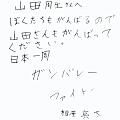 山田周生さんへ
ぼくたちもがんばるので
山田さんもがんばって
ください。
日本一周
ガンバレー
ファイト